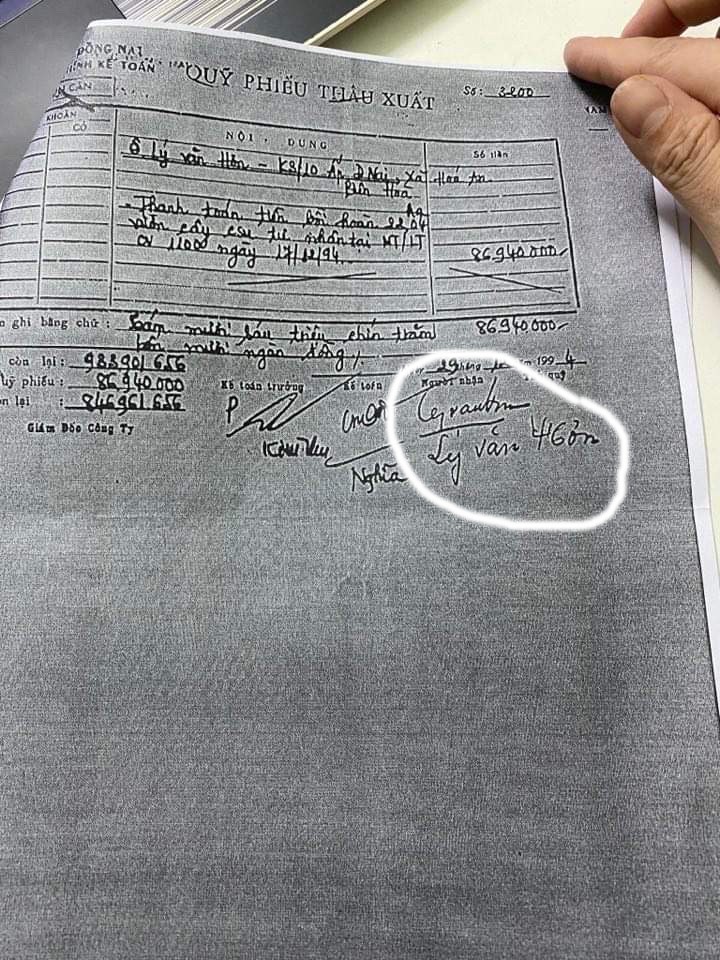 ĐỒNG NAI
KẾ TOÁN
QUỸ PHIẾU THÂU XUẤT
Số: 3200
CĂN
KHOẢN
CÓ
NỘI DUNG
Số tiền
Ô Lý văn Hớn - K8/10 Ấp Đ Nai, Xã Hoá An
Biên Hoà
- Thanh toán tiền bồi hoàn 2204
cây csu tư nhân tại NT/LT
CV 1100 ngày 17/12/94.
86940.000-
ghi bằng chữ: Tám mươi sáu triệu chín trăm
86940.000-
bốn mươi ngàn đồng
còn lại: 933901.656
uỹ phiếu: 86940.000
lại: 846961.656
29 tháng 199 4
Kế toán trưởng
Kế toán
Người nhận
quỹ
Giám Đốc Công Ty
Nghĩa
Lý văn Hớn